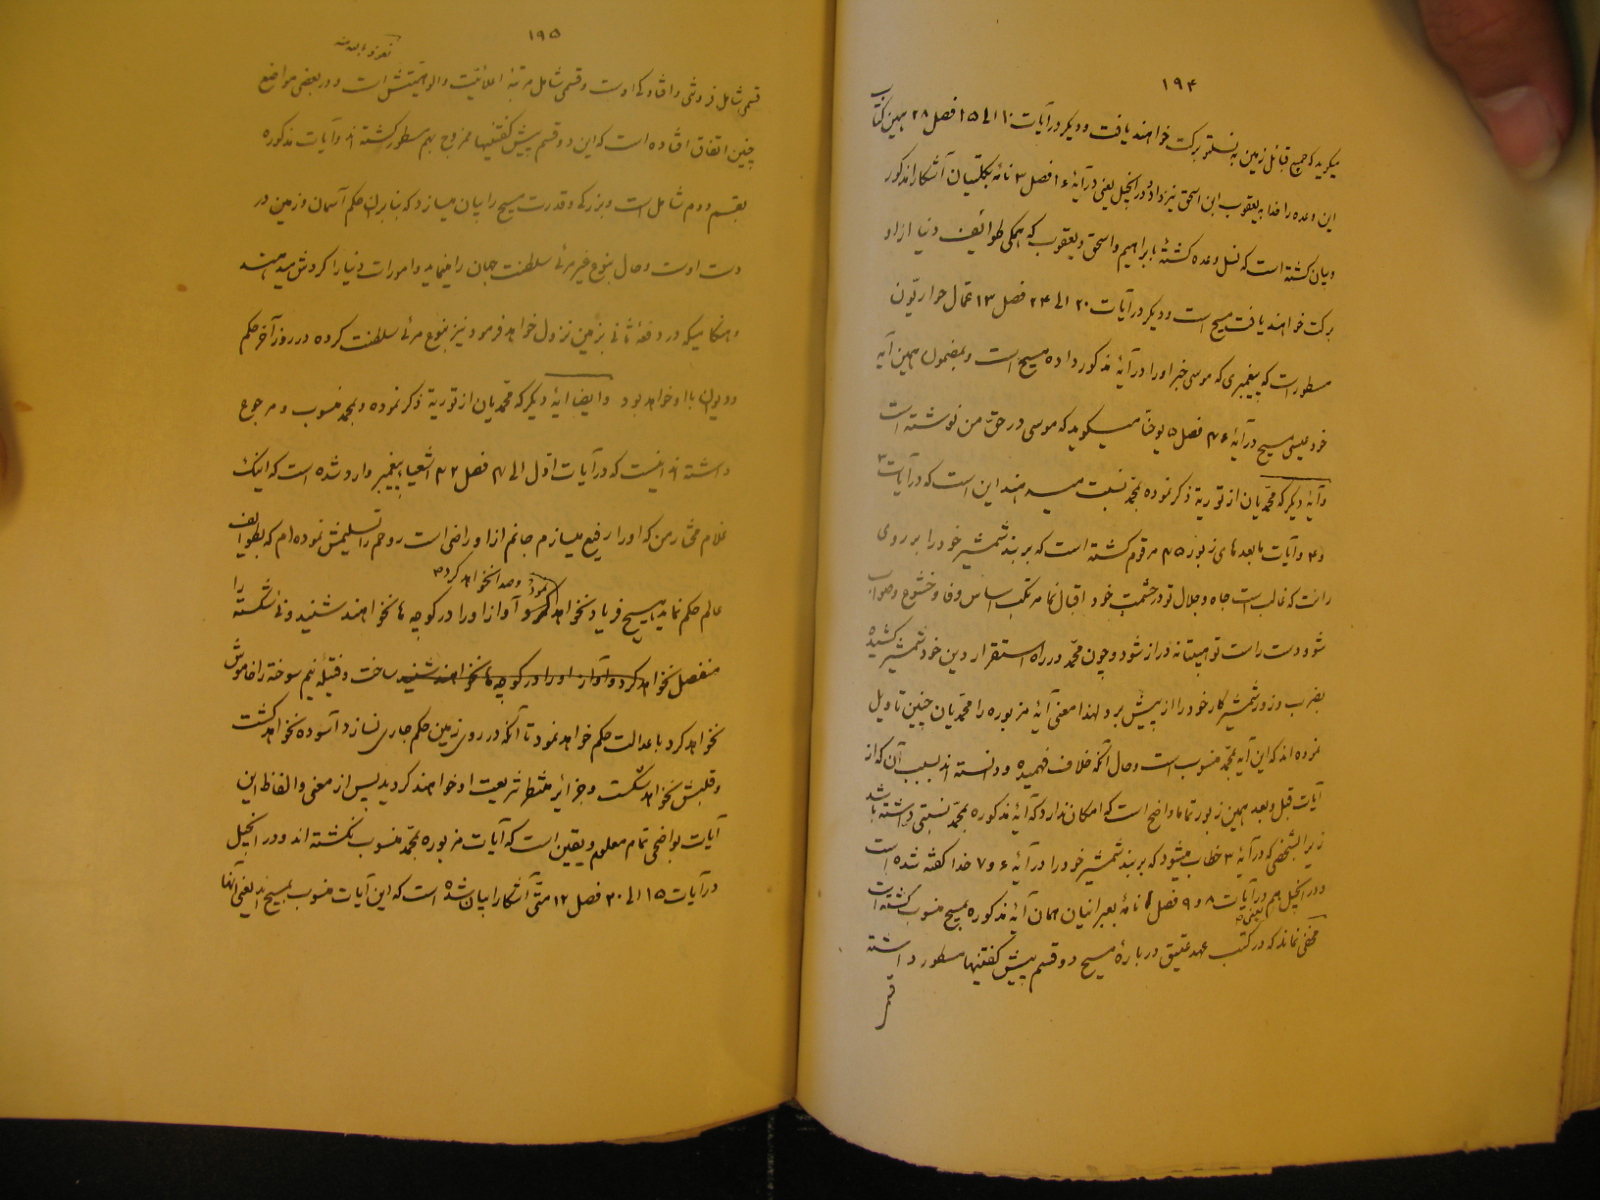 ۱۹۴
میگوید که جمیع قبائل زمین به نسل تو برکت خواهند یافت و دیگر در آیات ۱۰ الی ۱۵ فصل ۲۸ همین کتاب
این وعده را خدا به یعقوب ابن اسحق نیز داد و در انجیل یعنی در آیهٔ ۱۶ فصل ۳ نامهٔ بگلتیان آشکارا مذکور
و بیان گشته است که نسل وعده گشتهٔ بابراهیم و اسحق و یعقوب که همگی طوائف دنیا از او
برکت خواهند یافت مسیح است و دیگر در آیات ۲۰ الی ۲۴ فصل ۱۳ اعمال حواریون
مسطور است که پیغمبری که موسی خبر او را در آیهٔ مذکور داده مسیح است و بمضمون همین آیه
خود عیسی مسیح در آیهٔ ۴۶ فصل ۵ یوحنا میگوید که موسی در حق من نوشته است
و آیهٔ دیگر که محمدیان از توریة ذکر نموده بمحمد نسبت میدهند این است که در آیات ۳
و ۴ و آیات مابعدهای زبور ۴۵ مرقوم گشته است که بر بند شمشیر خود را بر روی
رانت که غالب است جاه و جلال تو در حشمت خود اقبال نما مرتکب اساس وفا و خشوع و صواب
شو و دست راست تو مهیبتانه دراز شود و چون محمد در راه استقرار دین خود شمشیر کشیده
بضرب و زور شمشیر کار خود را از پیش برد لهذا معنی آیهٔ مزبوره را محمدیان چنین تاویل
نموده اند که این آیه بمحمد منسوب است و حال آنکه خلاف فهمیده و دانسته اند بسبب آن که از
آیات قبل و بعد همین زبور تماما واضح است که امکان ندارد که آیهٔ مذکوره بمحمد نسبتی داشته باشد
زیرا الشخصی که در آیهٔ ۳ خطاب میشود که بر بند شمشیر خود را در آیهٔ ۶ و ۷ خدا گفته شده است
و در انجیل هم در آیات ۸ و ۹ فصل ۱ نامهٔ بعبرانیان همان آیهٔ مذکوره بمسیح منسوب گشته است
مخفی نماند که در کتب یعنی عهد عتیق دربارهٔ مسیح دو قسم پیش گفتنیها مسطور داشته
قسمی
۱۹۵
قسمی شامل فروتنی و افتادگی اوست و قسمی شامل مرتبهٔ اعلائیت و الوهیتش است و در بعضی مواضع
چنین اتفاق افتاده است که این دو قسم پیش گفتنیها ممزوج بهم مسطور گشته اند و آیات مذکوره
بقسم دوم شامل است و بزرگی و قدرت مسیح را بیان میسازد که بنابر آن حکم آسمان و زمین در
دست اوست و حال بنوع غیر مرئی سلطنت جهان را مینماید و امورات دنیا را گردش میدهد
و هنگامیکه در دفعهٔ ثانی بزمین نزول خواهد فرمود نیز بنوع مرئی سلطنت کرده در روز آخر حکم
و دیوان با او خواهد بود و ایضا آیهٔ دیگر که محمدیان از توریة ذکر نموده و بمحمد منسوب و مرجوع
داشته اند اینست که در آیات اول الی ۴ فصل ۴۲ اشعیاء پیغمبر وارد شده است که اینک
غلام مختار من که او را رفیع میسازم جانم از او راضی است روحم را تسلیمش نموده ام که بطوایف
عالم حکم نماید هیچ فریاد نخواهد نمود و صدا نخواهد کرد و آواز او را در کوچه ها نخواهند شنید و نی شکسته را
منفصل نخواهد کرد و آواز او را در کوچه ها نخواهند شنید ساخت و فتیلهٔ نیم سوخته را خاموش
نخواهد کرد با عدالت حکم خواهد نمود تا آنکه در روی زمین حکم جاری نسازد آسوده نخواهد گشت
و قلبش نخواهد شکست و جزائر منتظر شریعت او خواهند گردید پس از معنی و الفاظ این
آیات بواضحی تمام معلوم و یقین است که آیات مزبوره بمحمد منسوب نگشته اند و در انجیل
در آیات ۱۵ الی ۲۰ فصل ۱۲ متی آشکارا بیان شده است که این آیات منسوب بمسیح اند یعنی آنها